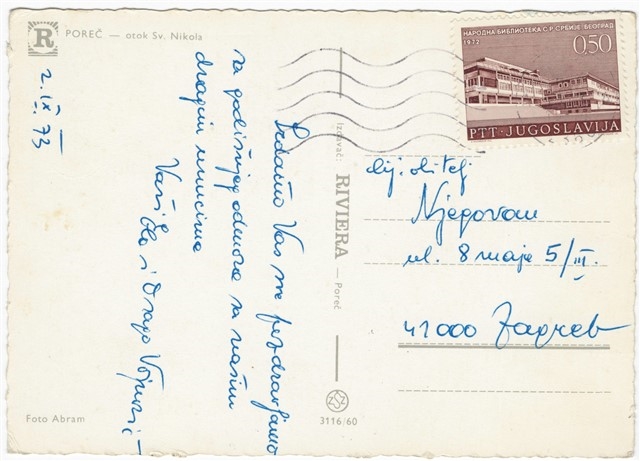 R
POREČ — otok Sv. Nikola
2. IX. 73
Srdačno Vas sve pozdravljamo
sa godišnjeg odmora sa našim
dragim unucima
Vaši i Drago
Foto Abram
Izdavač: RIVIERA — Poreč
3116/60
НАРОДНА БИБЛИОТЕКА С.Р. СРБИЈЕ-БЕОГРАД
1972
0,50
PTT·JUGOSLAVIJA
cij. obitelj
Njegovan
ul. 8 maja 5/III.
41000 Zagreb